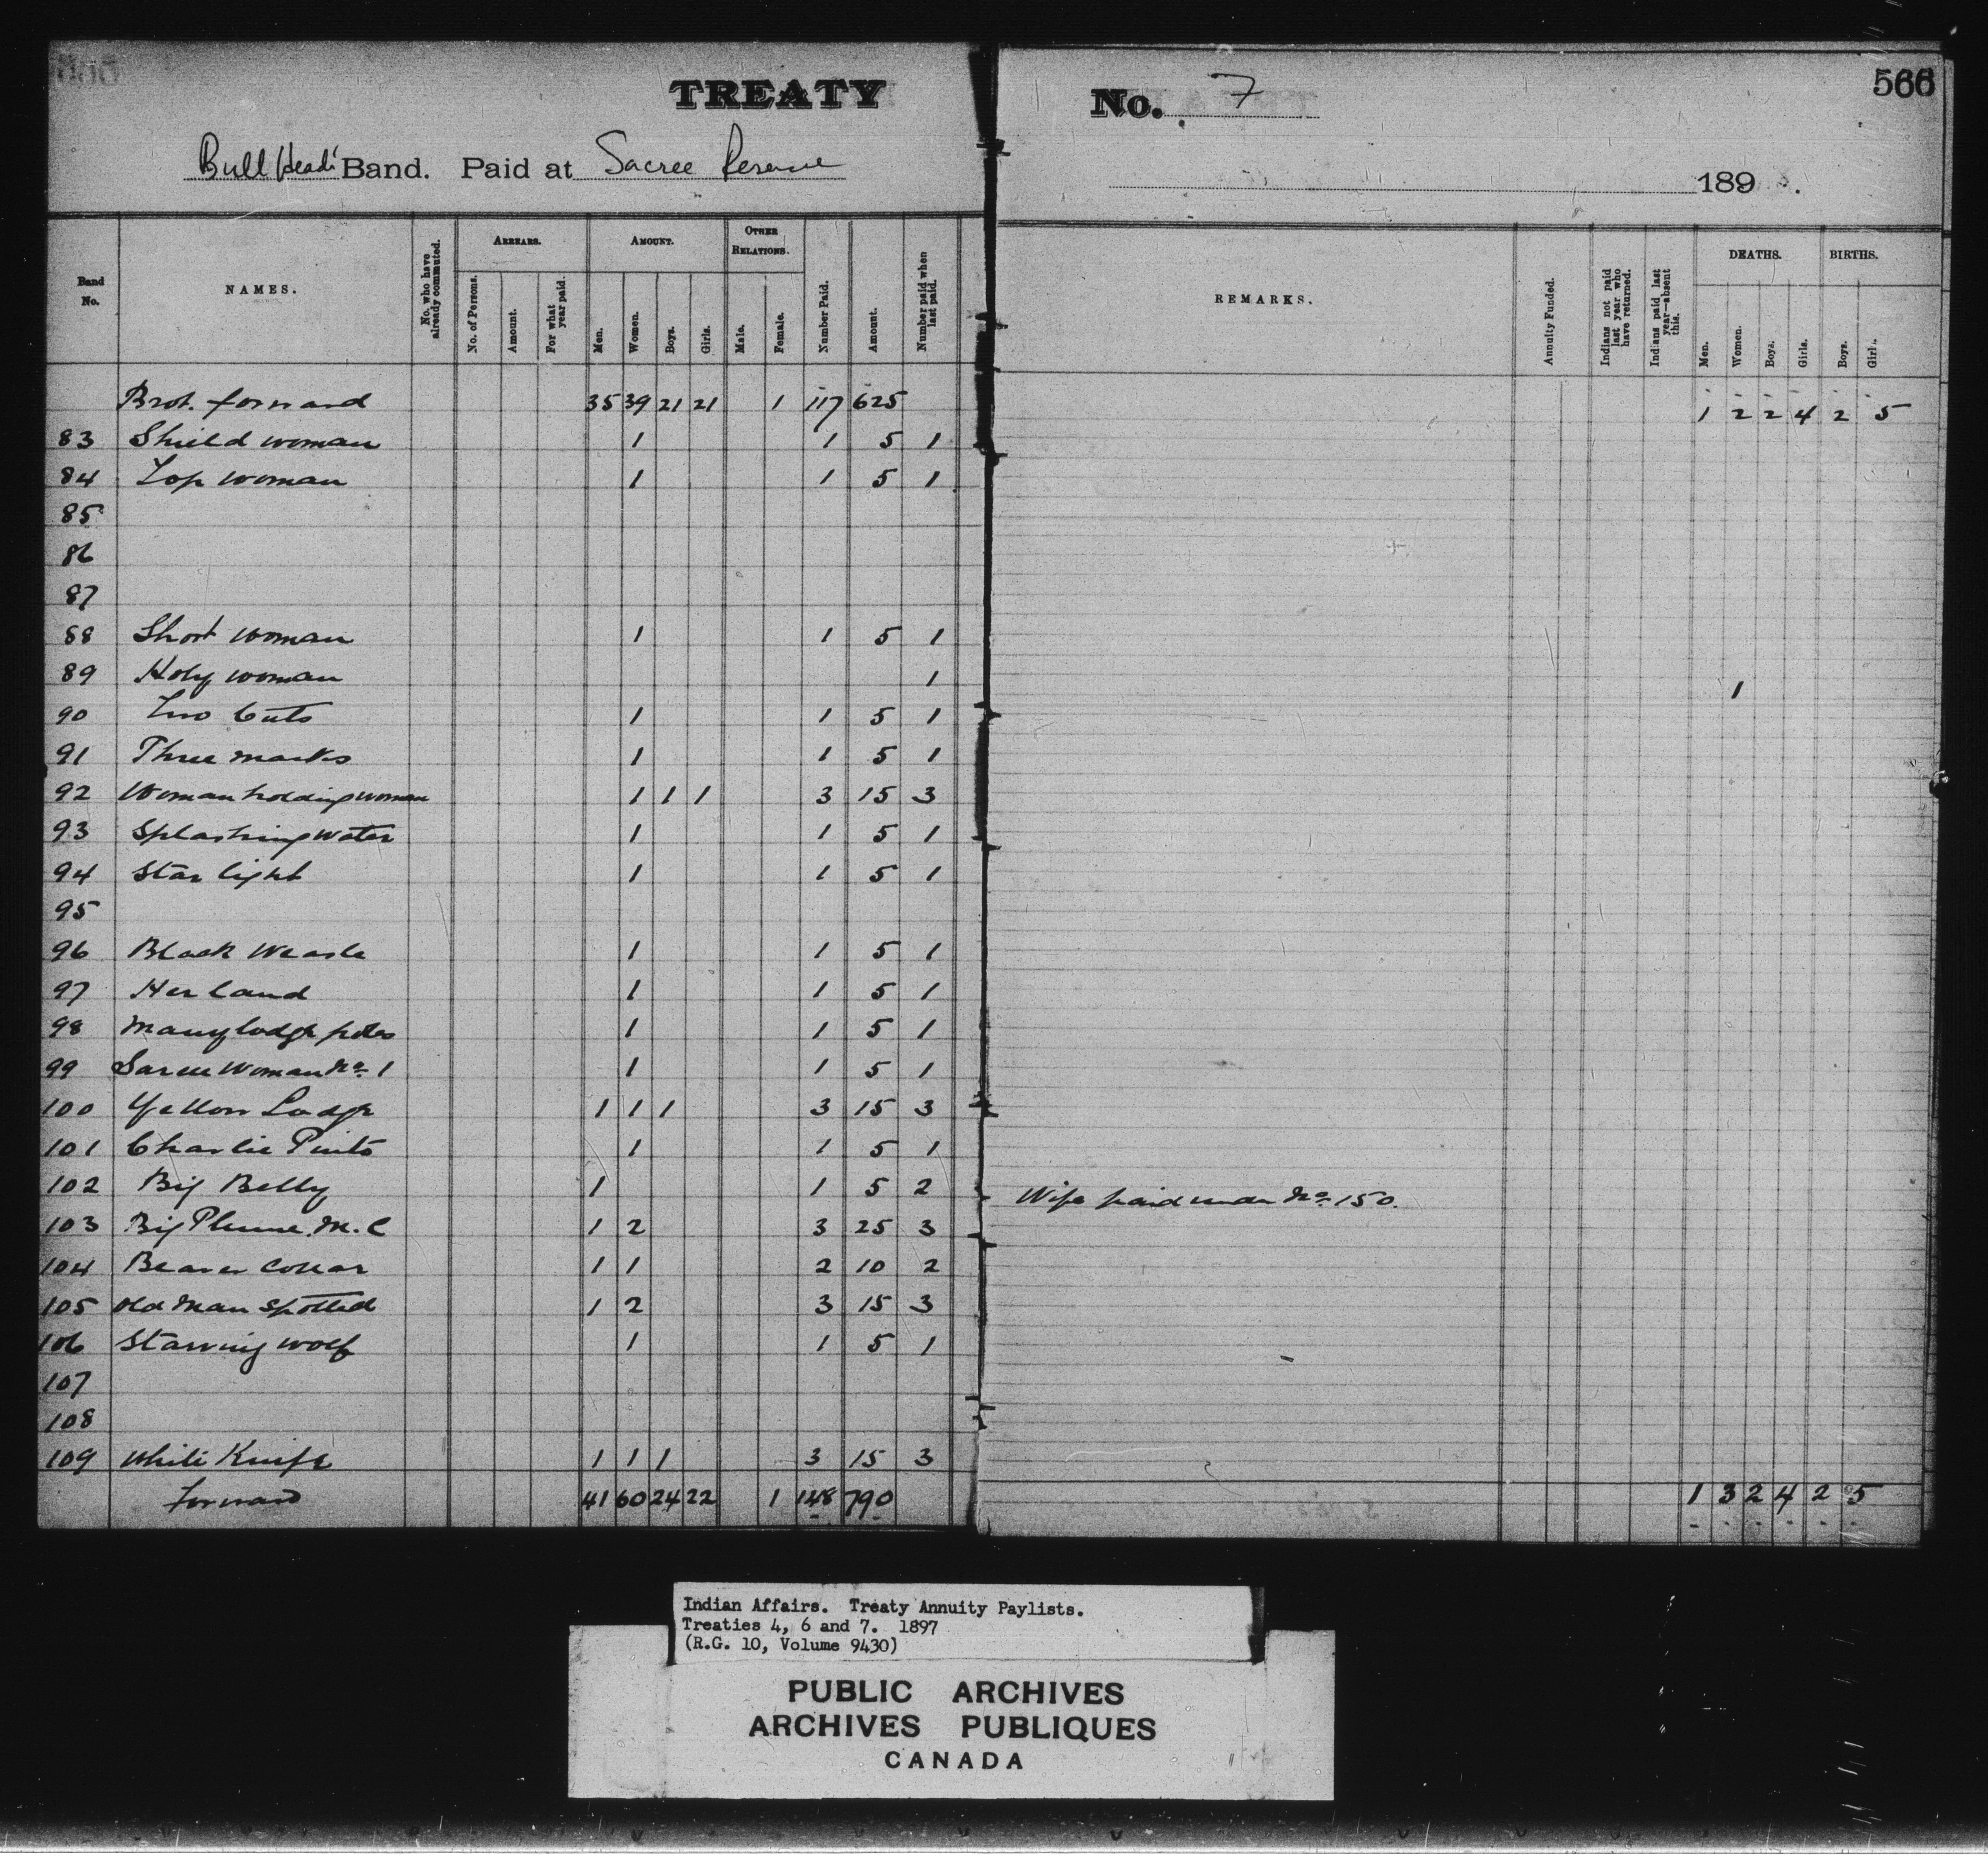 TREATY No. 7 566
Bull Head's Band. Paid at Sarcee Reserve 189 .
Band No. NAMES. No. who have already commuted. ARREARS. No. of Persons. Amount. For what year paid. AMOUNT. Men. Women. Boys. Girls. OTHER RELATIONS. Male. Female. Number Paid. Amount. Number paid when last paid. REMARKS. Annuity Funded. Indians not paid last year who have returned. Indians paid last year—absent this. DEATHS. Men. Women. Boys. Girls. BIRTHS. Boys. Girls.
Brot. forward 35 39 21 21 1 117 625 1 2 2 4 2 5
83 Shield woman 1 1 5 1
84 Top woman 1 1 5 1
85
86
87
88 Short woman 1 1 5 1
89 Holy woman 1 1
90 Two Cuts 1 1 5 1
91 Three marks 1 1 5 1
92 Woman holding woman 1 1 1 3 15 3
93 Splashing water 1 1 5 1
94 Star light 1 1 5 1
95
96 Black Weasle 1 1 5 1
97 Her land 1 1 5 1
98 Many lodge poles 1 1 5 1
99 Sarcee Woman No. 1 1 1 5 1
100 Yellow Lodge 1 1 1 3 15 3
101 Charlie Pinto 1 1 5 1
102 Big Belly 1 1 5 2 Wife paid under No. 150.
103 Big Plume. M. C 1 2 3 25 3
104 Beaver Collar 1 1 2 10 2
105 Old Man Spotted 1 2 3 15 3
106 Starving wolf 1 1 5 1
107
108
109 White Knife 1 1 1 3 15 3
Forward 41 60 24 22 1 148 790 1 3 2 4 2 5
Indian Affairs. Treaty Annuity Paylists.
Treaties 4, 6 and 7. 1897
(R.G. 10, Volume 9430)
PUBLIC ARCHIVES
ARCHIVES PUBLIQUES
CANADA